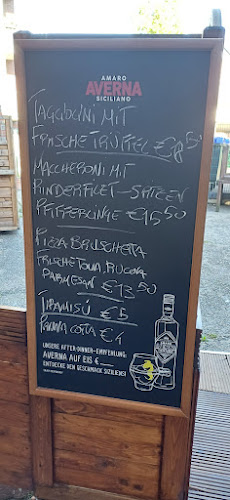 AMARO
AVERNA
SICILIANO
TAGLIOLINI MIT
FRISCHE TRÜFFEL €18,50
MACCHERONI MIT
RINDERFILET-SPITZEN
PFIFFERLINGE €16,50
PIZZA BRUSCHETTA
FRISCHE TOMA, RUCOLA
PARMESAN €13,50
TIRAMISÚ €5
PANNA COTTA €4
UNSERE AFTER-DINNER-EMPFEHLUNG
AVERNA AUF EIS €
ENTDECKE DEN GESCHMACK SIZILIENS!